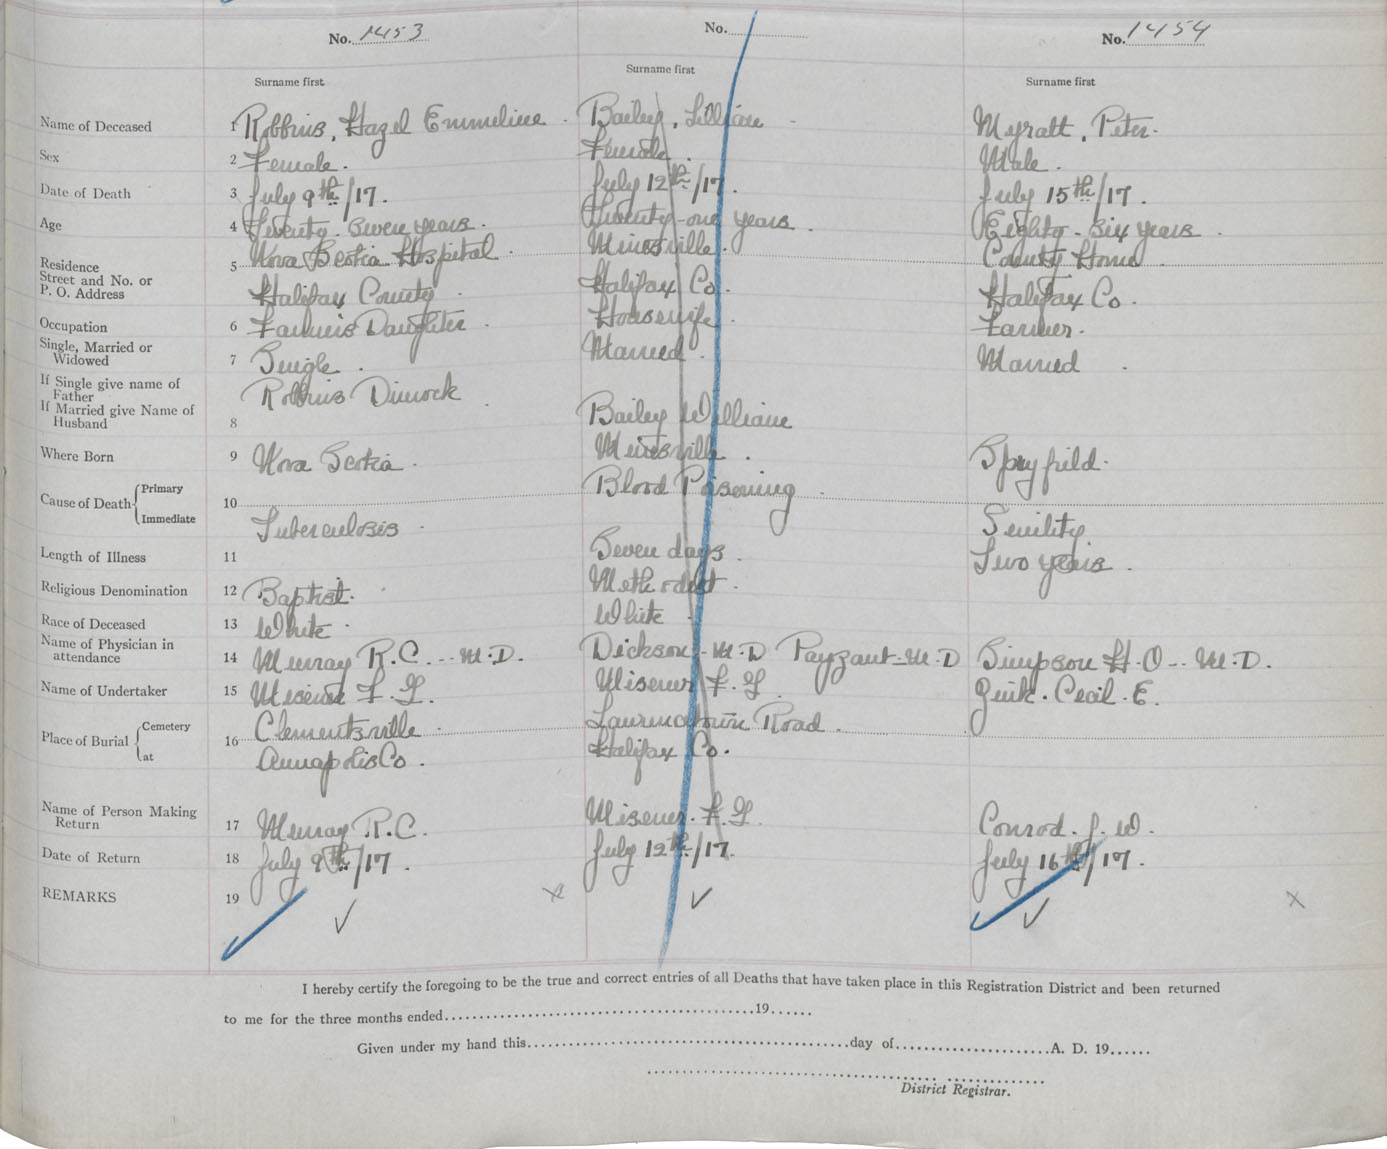 No. 1453
No.
No. 1454
Surname first
Surname first
Surname first
Name of Deceased 1 Robbins, Hazel Emmeline Bailey, Lillian Myratt, Peter.
Sex 2 Female. Female. Male.
Date of Death 3 July 9th/17. July 12th/17. July 15th/17.
Age 4 Twenty-Seven years. Twenty-one years. Eighty-Six years.
Residence 5 Nova Scotia Hospital Minesville. County Home
Street and No. or
P. O. Address Halifax County Halifax Co. Halifax Co.
Occupation 6 Farmers Daughter. Housewife. Farmer.
Single, Married or
Widowed 7 Single. Married. Married.
If Single give name of
Father Robbins Dimock
If Married give Name of
Husband 8 Bailey William
Where Born 9 Nova Scotia. Minesville. Spryfield.
Cause of Death Primary 10 Blood Poisoning.
Immediate Tuberculosis. Senility.
Length of Illness 11 Seven days. Two years.
Religious Denomination 12 Baptist. Methodist.
Race of Deceased 13 White. White.
Name of Physician in
attendance 14 Murray R.C. -- M.D. Dickson - M.D Payzant - M.D Simpson H.O -- M.D.
Name of Undertaker 15 Misener F. G. Misener F. G. Cecil. E.
Place of Burial Cemetery 16 Clementsville Lawrencetown Road.
at Annapolis Co. Halifax Co.
Name of Person Making
Return 17 Murray R.C. Misener. F. G. Conrod. J. W.
Date of Return 18 July 9th/17. July 12th/17. July 16th/17.
REMARKS 19
I hereby certify the foregoing to be the true and correct entries of all Deaths that have taken place in this Registration District and been returned
to me for the three months ended 19
Given under my hand this day of A. D. 19
District Registrar.